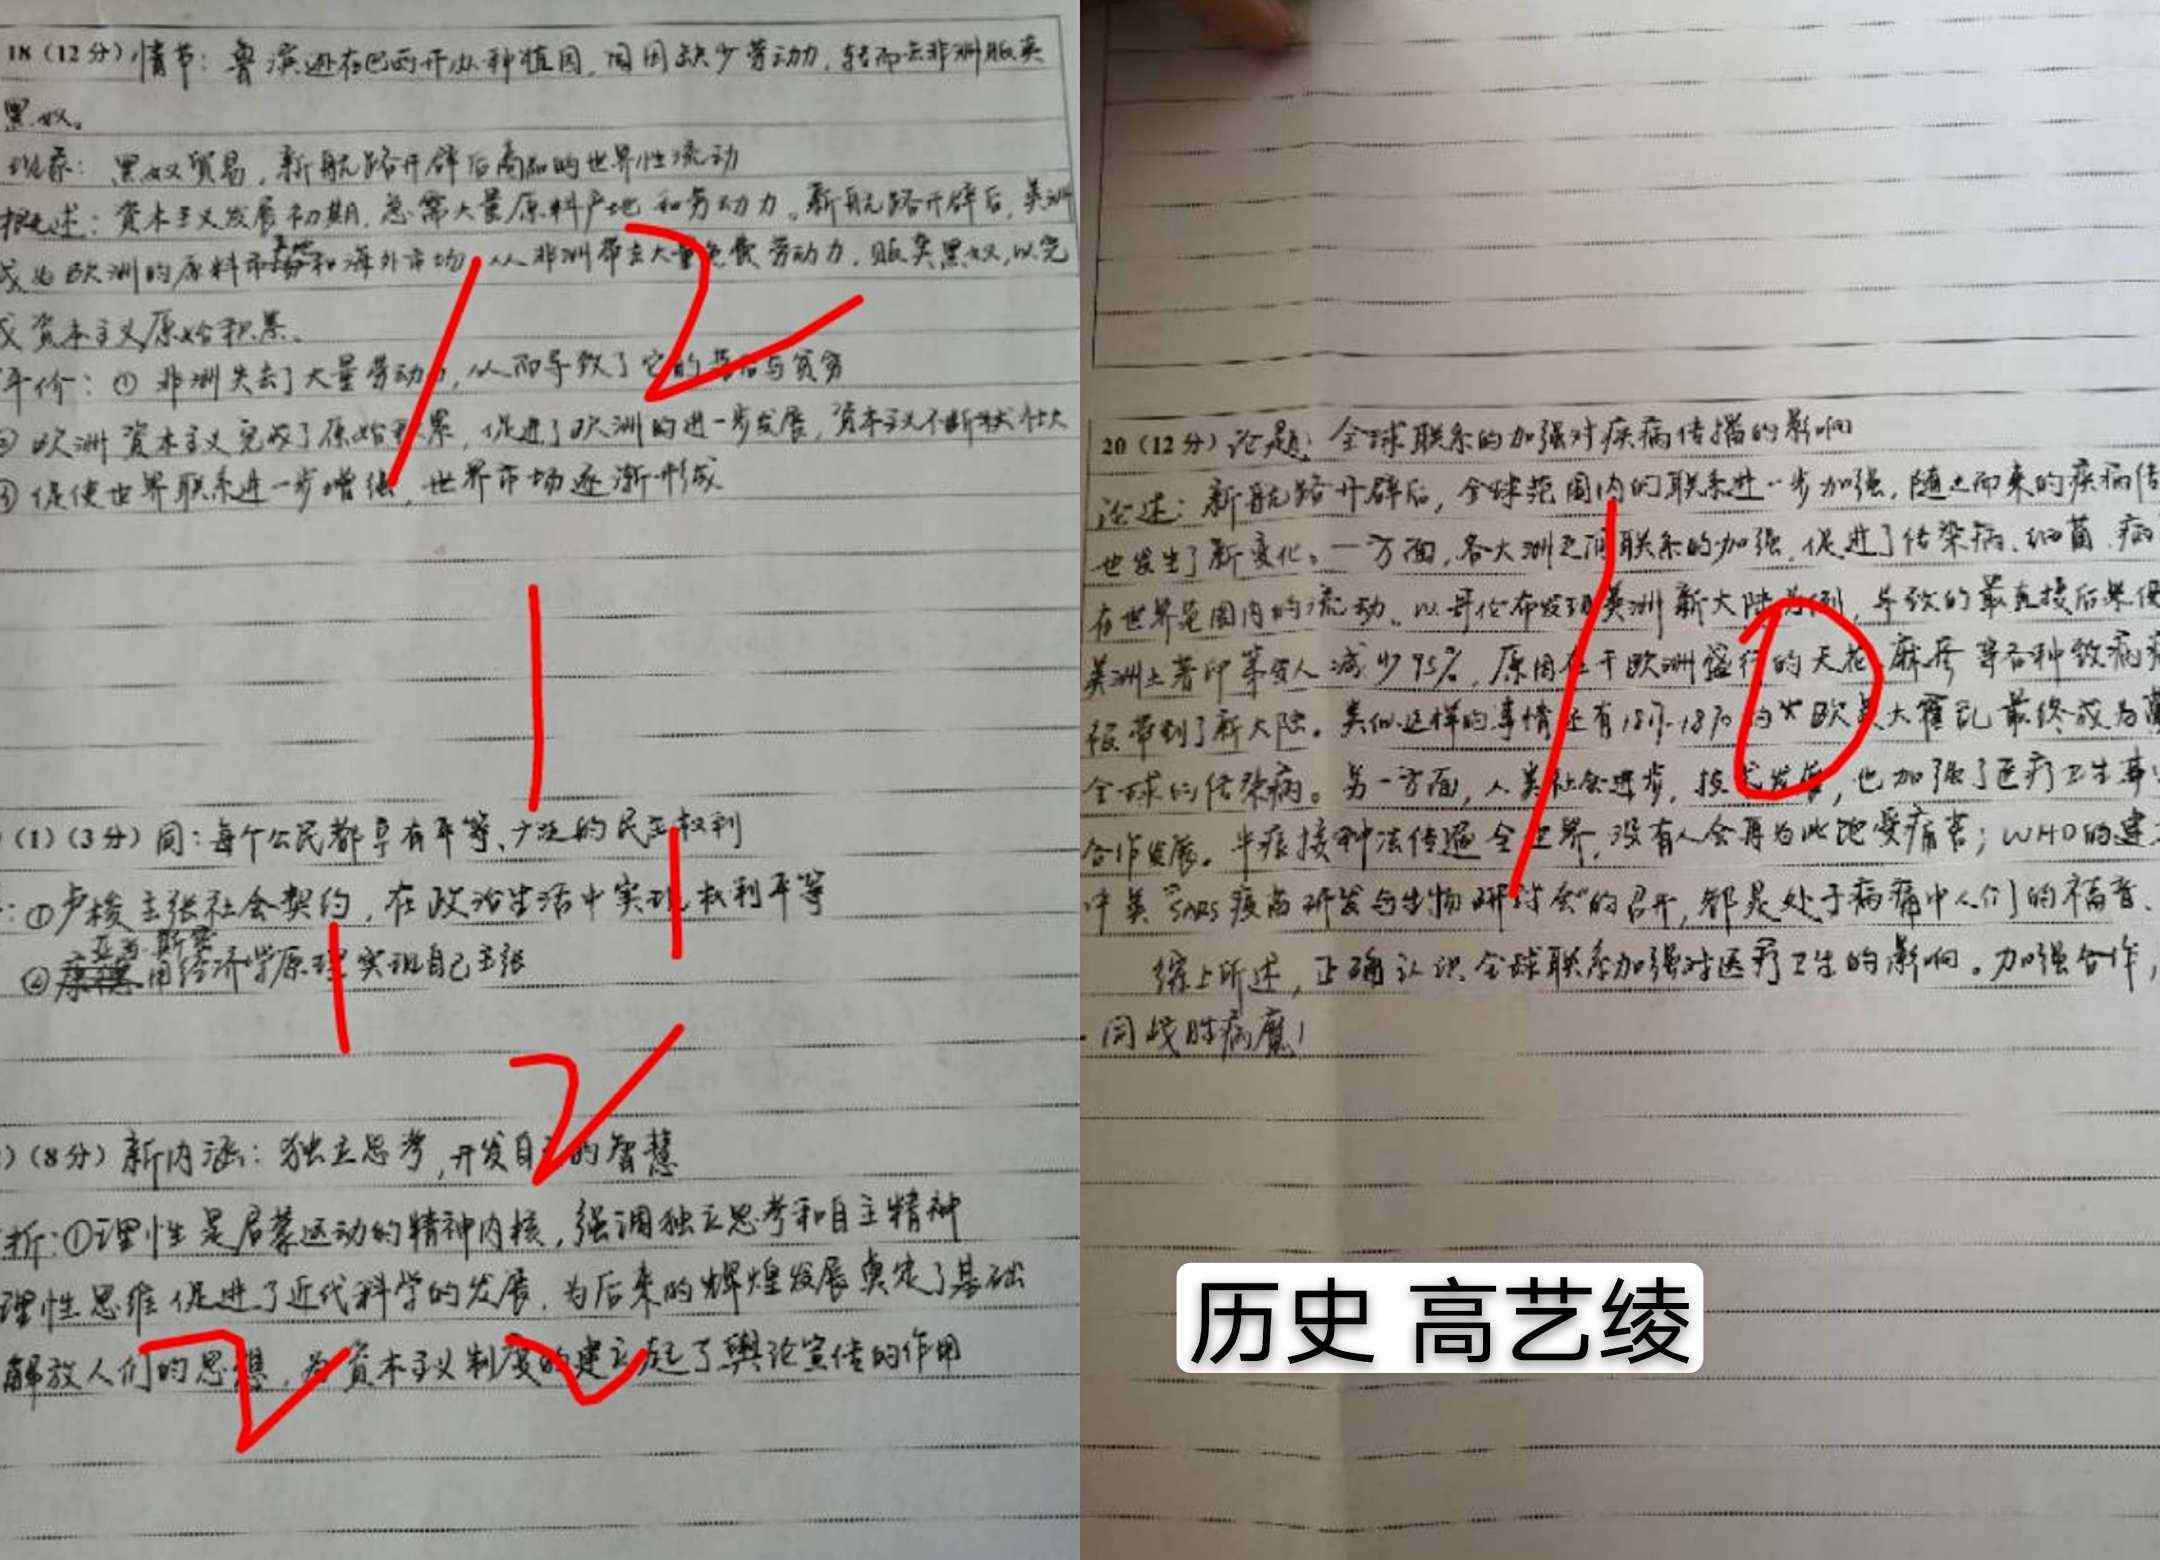 18（12分）情节：鲁滨逊在巴西开办种植园，因缺少劳动力，转而去非洲贩卖
黑奴。
现象：黑奴贸易，新航路开辟后商品的世界性流动
概述：资本主义发展初期，急需大量原料产地和劳动力。新航路开辟后，美洲
成为欧洲的原料和海外市场，从非洲带去大量免费劳动力，贩卖黑奴，以完
成资本主义原始积累。
评价：①非洲失去了大量劳动力，从而导致了它的落后与贫穷
②欧洲资本主义完成了原始积累，促进了欧洲的进一步发展，资本主义不断壮大
③促使世界联系进一步增强，世界市场逐渐形成
12
1
（1）（3分）同：每个公民都享有平等、广泛的民主权利
：①卢梭主张社会契约，在政治生活中实现权利平等
亚当·斯密
②用经济学原理实现自己主张
1
1
2
）（8分）新内涵：独立思考，开发自己的智慧
析：①理性是启蒙运动的精神内核，强调独立思考和自主精神
理性思维促进了近代科学的发展，为后来的辉煌发展奠定了基础
解放人们的思想，为资本主义制度的建立起了舆论宣传的作用
2
20（12分）论题：全球联系的加强对疾病传播的影响
论述：新航路开辟后，全球范围内的联系进一步加强，随之而来的疾病传
也发生了新变化。一方面，各大洲之间联系的加强，促进了传染病、细菌、病
在世界范围内的流动。以哥伦布发现美洲新大陆为例，导致的最直接后果便
美洲土著印第安人减少95%，原因在于欧洲盛行的天花、麻疹等各种致病
被带到了新大陆。类似这样的事情还有1817-1870的欧大霍乱最终成为
全球的传染病。另一方面，人类社会进步，技术发展，也加强了医疗卫生事
合作发展。牛痘接种法传遍全世界，没有人会再为此饱受痛苦；WHO的建
中美“SARS疫苗研发与生物研讨会”的召开，都是处于病痛中人们的福音。
综上所述，正确认识全球联系加强对医疗卫生的影响。加强合作，
同战胜病魔！
10
历史 高艺绫